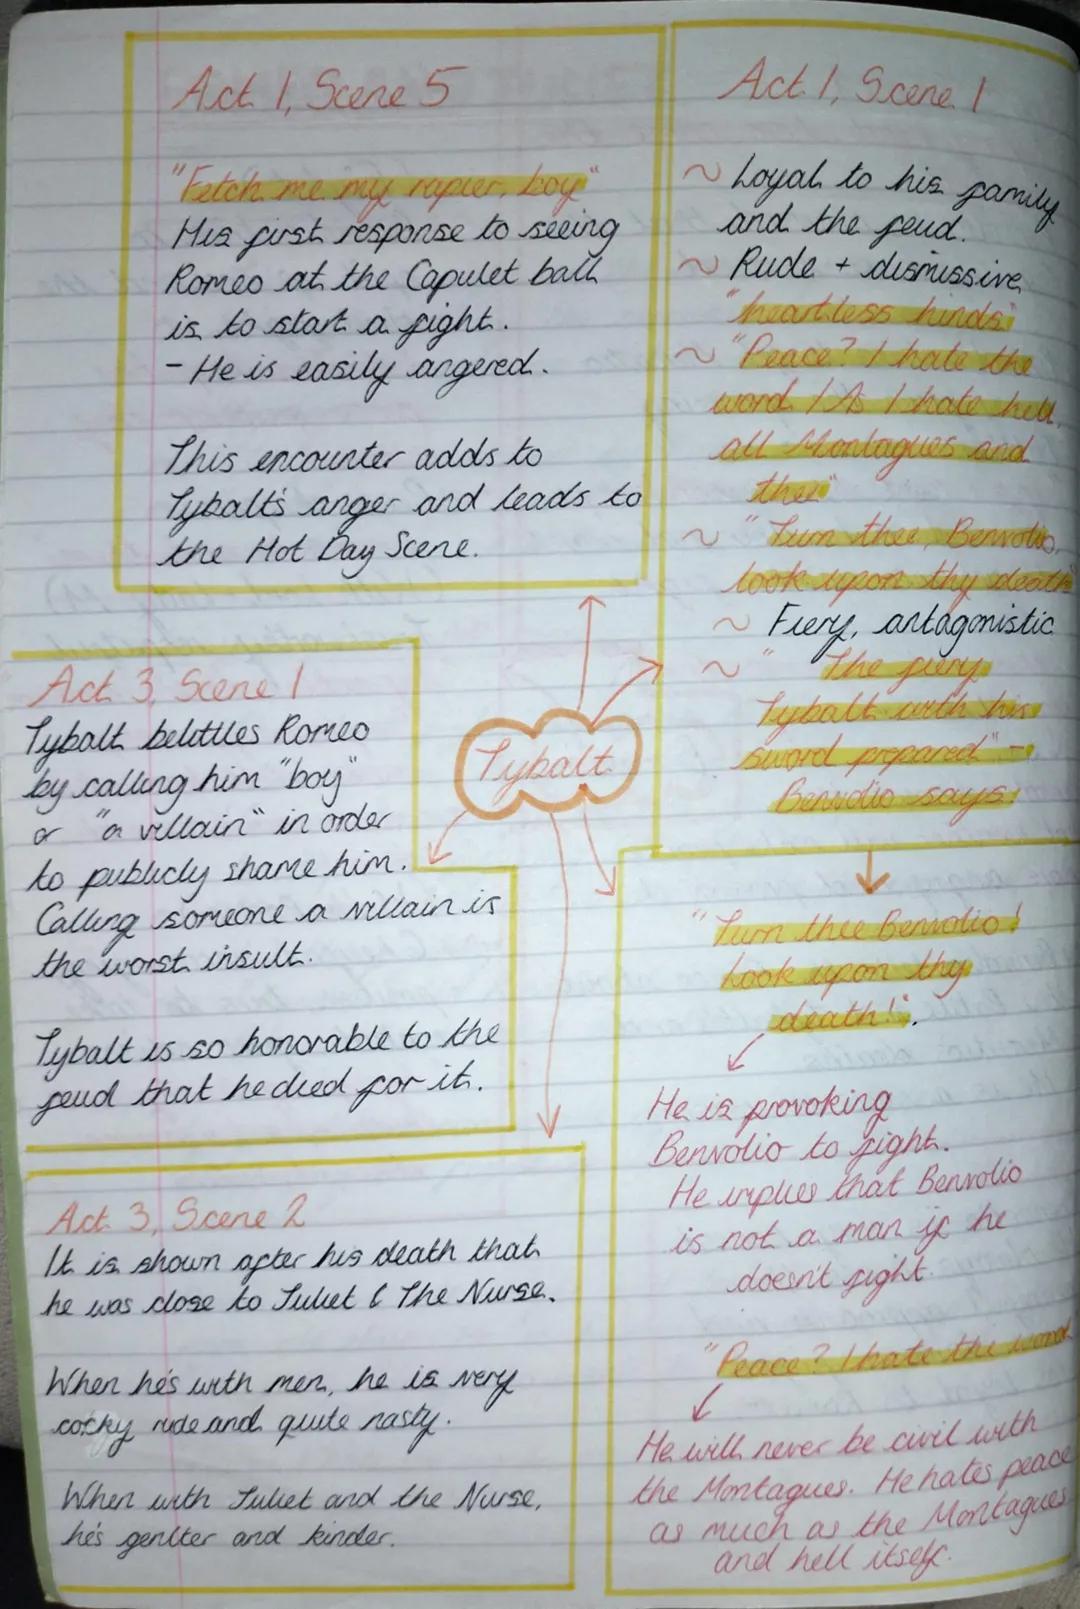 Act 1, Scene 5
"Fetch me my rapier, boy"
His first response to seeing
Romeo at the Capulet ball
is to start a fight.
- He is easily angered.
This encounter adds to
Tybalt's anger and leads to
the Hot Day Scene.
Act 1, Scene 1
~ Loyal to his family
and the feud.
~ Rude + dismissive
"heartless hinds"
~ "Peace? I hate the
word / As I hate hell,
all Montagues and
thee"
~ "Turn thee, Benvolio,
look upon thy death"
~ Fiery, antagonistic
~ " The fiery
Tybalt with his
sword prepared" -
Benvolio says!
Tybalt
Act 3, Scene 1
Tybalt belittles Romeo
by calling him "boy"
or "a villain" in order
to publicly shame him.
Calling someone a villain is
the worst insult.
Tybalt is so honorable to the
feud that he died for it.
"Turn thee Benvolio!
Look upon thy
death!".
He is provoking
Benvolio to fight.
He implies that Benvolio
is not a man if he
doesn't fight.
"Peace? I hate the word
He will never be civil with
the Montagues. He hates peace
as much as the Montagues
and hell itself.
Act 3, Scene 2
It is shown after his death that
he was close to Juliet & The Nurse.
When he's with men, he is very
cocky rude and quite nasty.
When with Juliet and the Nurse,
he's genlter and kinder.